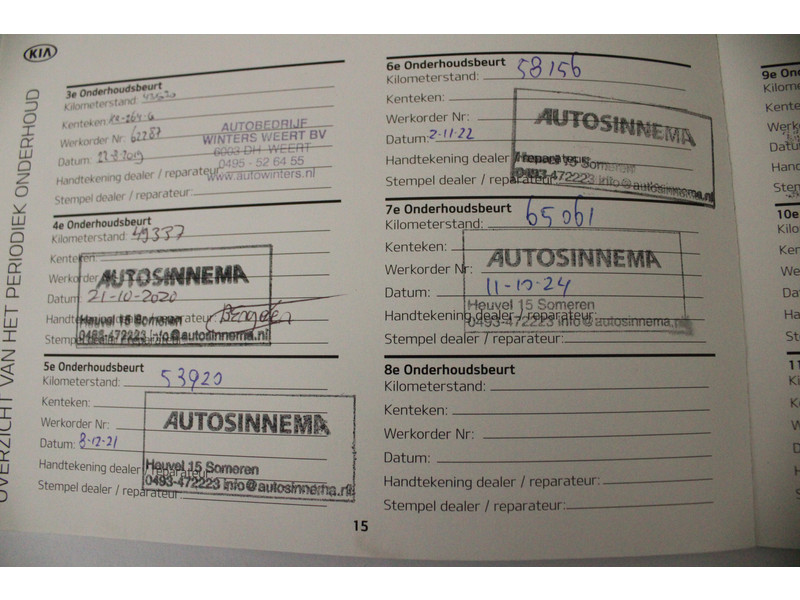 KIA
OVERZICHT VAN HET PERIODIEK ONDERHOUD
3e Onderhoudsbeurt
Kilometerstand:
Kenteken:
Werkorder Nr: 62287
Datum:
Handtekening dealer / reparateur:
Stempel dealer / reparateur:
AUTOBEDRIJF
WINTERS WEERT BV
6003 DH WEERT
0495 - 52 64 55
www.autowinters.nl
4e Onderhoudsbeurt
Kilometerstand: 49337
Kenteken:
Werkorder
Datum: 21-10-2020
Handtekening dealer / reparateur:
Stempel dealer / reparateur:
AUTOSINNEMA
Heuvel 15 Someren
0493-472223 info@autosinnema.nl
5e Onderhoudsbeurt
Kilometerstand: 53920
Kenteken:
Werkorder Nr:
Datum: 8-12-21
Handtekening dealer / reparateur:
Stempel dealer / reparateur:
AUTOSINNEMA
Heuvel 15 Someren
0493-472223 info@autosinnema.nl
6e Onderhoudsbeurt
Kilometerstand: 58156
Kenteken:
Werkorder Nr:
Datum: 2-11-22
Handtekening dealer / reparateur:
Stempel dealer / reparateur:
AUTOSINNEMA
Heuvel 15 Someren
0493-472223 info@autosinnema.nl
7e Onderhoudsbeurt
Kilometerstand: 65061
Kenteken:
Werkorder Nr:
Datum: 11-10-24
Handtekening dealer / reparateur:
Stempel dealer / reparateur:
AUTOSINNEMA
Heuvel 15 Someren
0493-472223 info@autosinnema.nl
8e Onderhoudsbeurt
Kilometerstand:
Kenteken:
Werkorder Nr:
Datum:
Handtekening dealer / reparateur:
Stempel dealer / reparateur:
15
9e On
10e